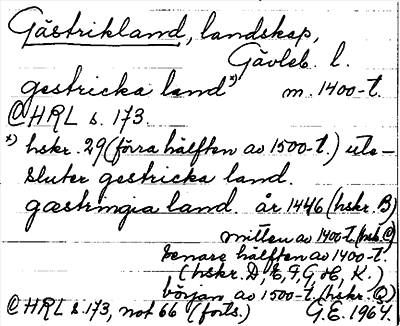 Gästrikland, landskap,
Gävleb. l.
gestricka land x) m. 1400-t.
@HRL s. 173.
x) hskr. 29 (förra hälften av 1500-t.) ute-
sluter gestricka land.
gæstringia land. år 1446 (hskr. B)
mitten av 1400-t. (hskr. C)
senare hälften av 1400-t.
(hskr. D, E, F, G, H, K.)
början av 1500-t. (hskr. Q)
@HRL s. 173, not 66 (forts.) G.E. 1964.